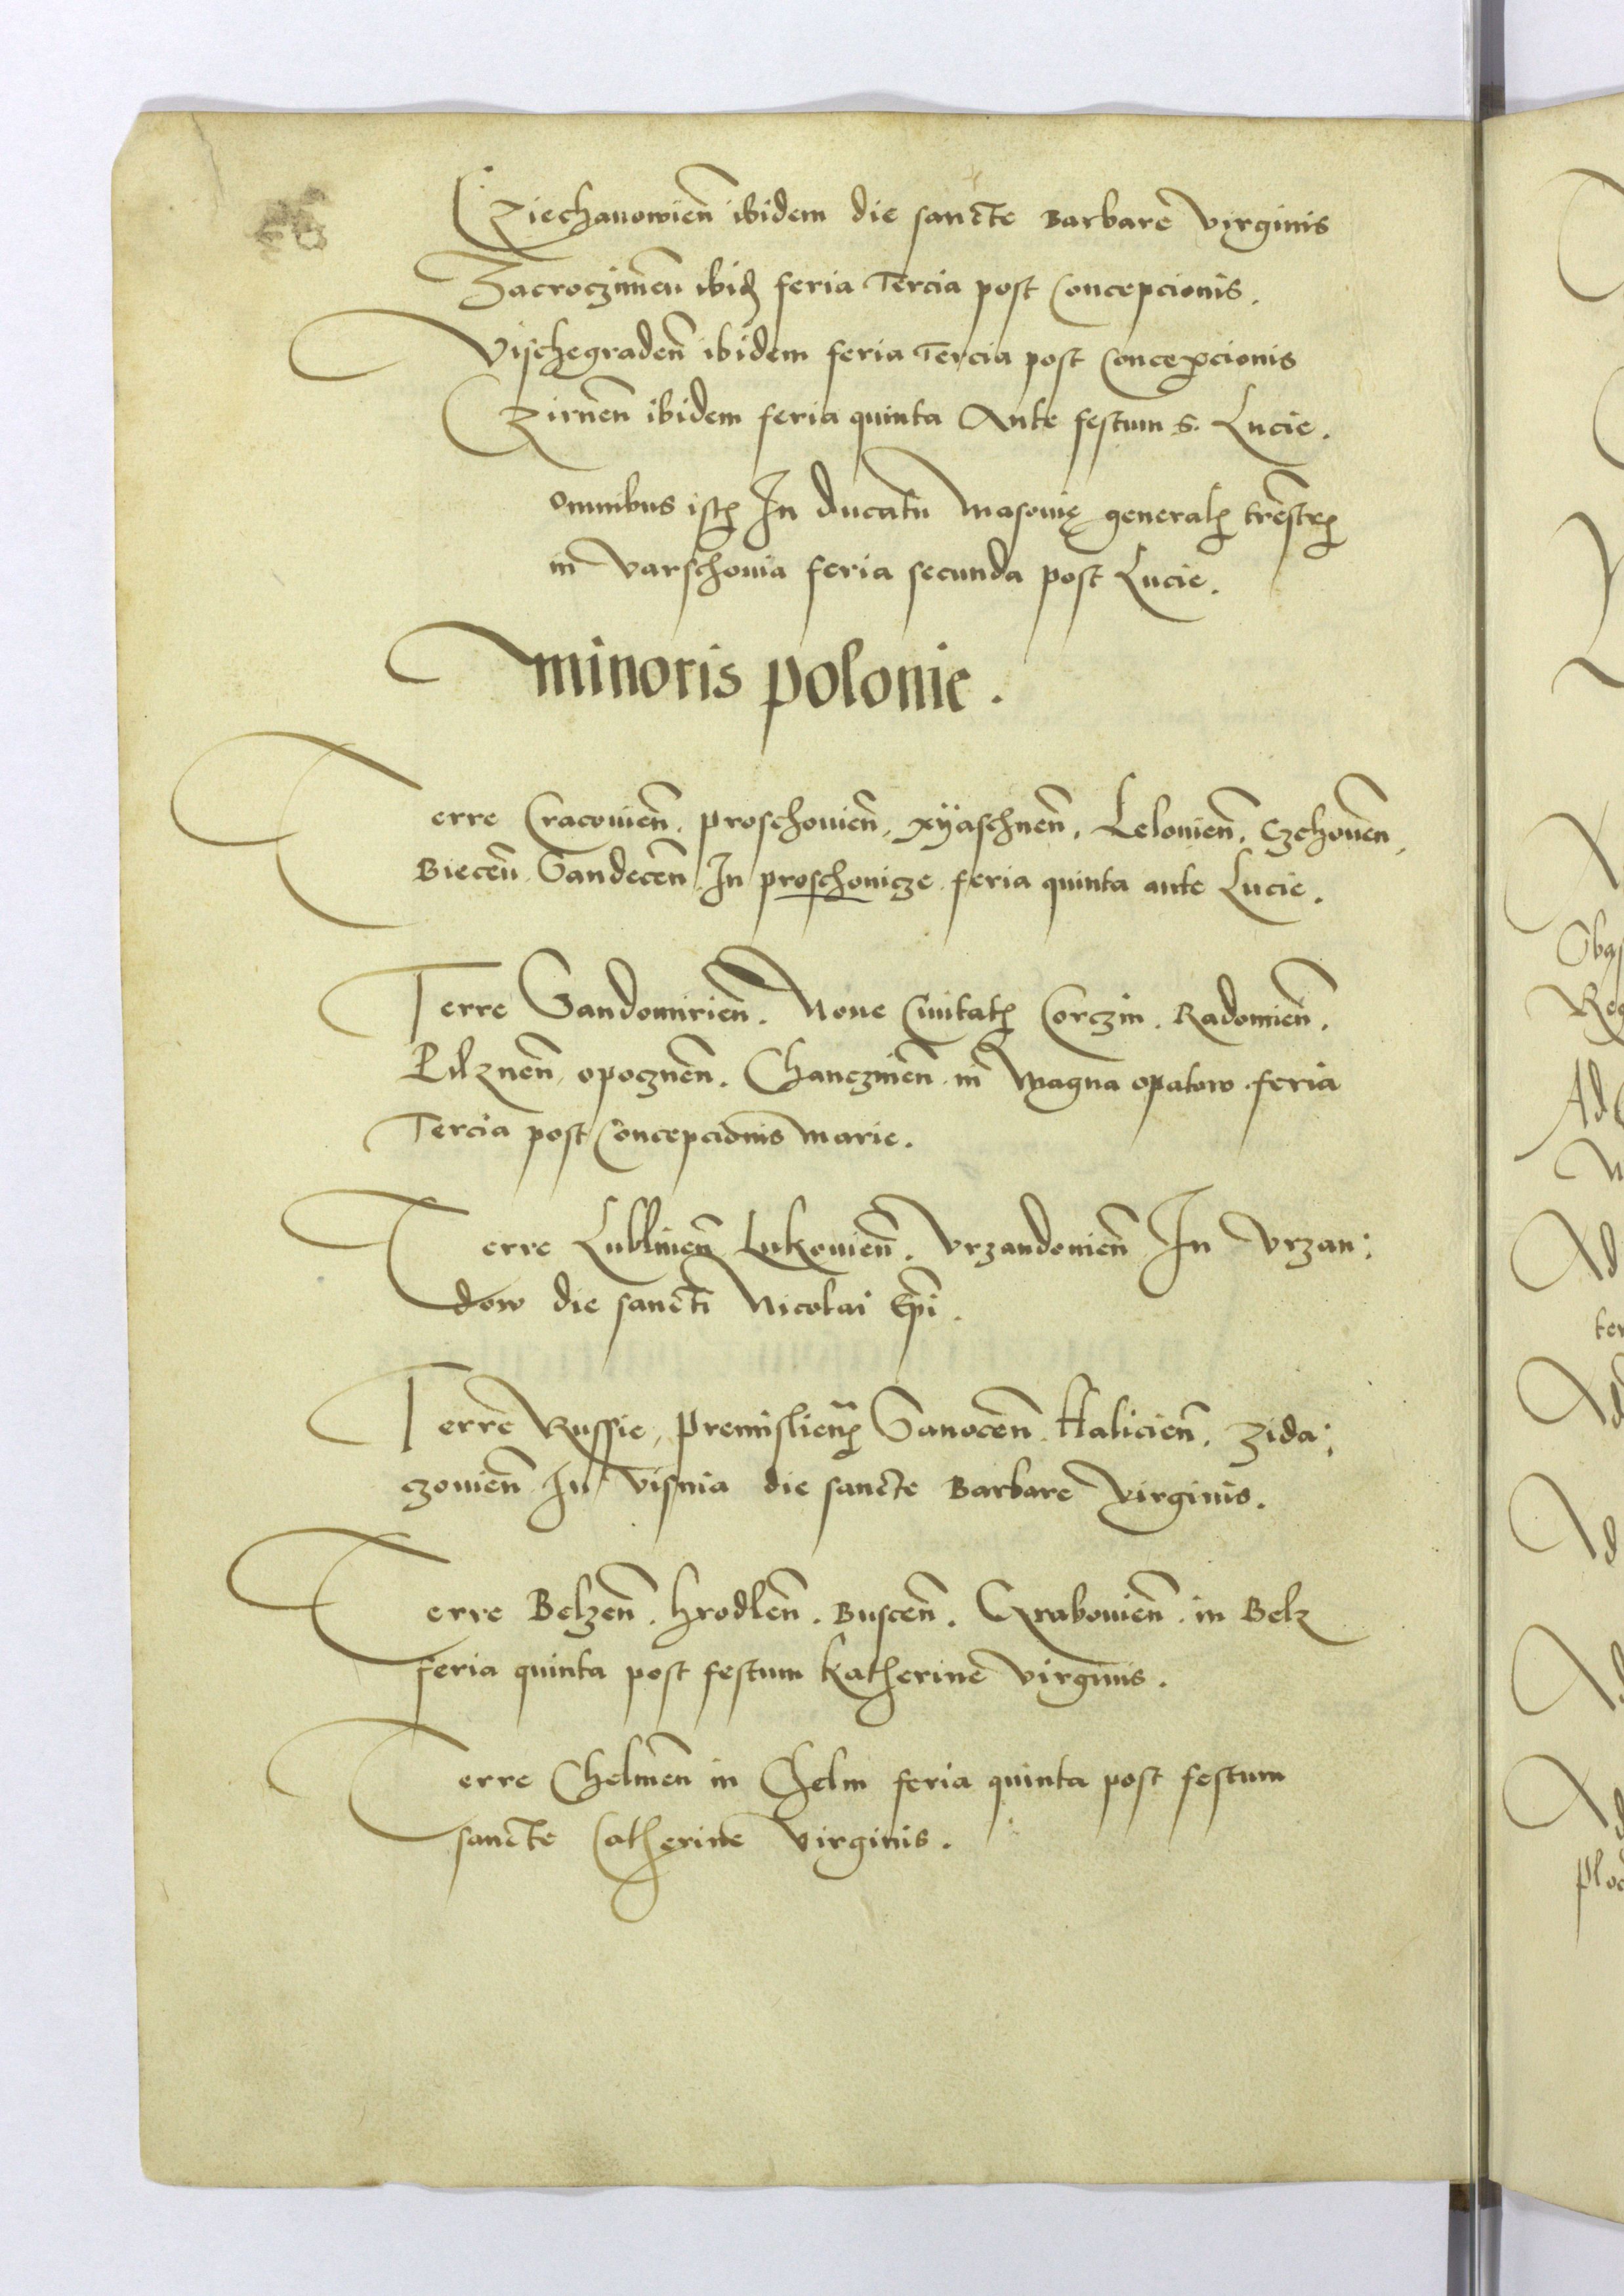 Cziechanowien̄ ibidem die sancte Barbare virginis
Zacroczimen̄ ibid̄ feria Tercia post Concepcionis.
Vischegraden̄ ibidem feria Tercia post Concepcionis
Czirnen̄ ibidem feria quinta Ante festum s. Lucie.
omnibus istꝭ In ducatu Masovię generalꝭ trēstrꝭ
in Varschovia feria secunda post Lucie.
Minoris polonie.
Terre Cracovien̄. proschovien̄. xyaschnen̄. Lelovien̄. Czchoven̄.
Biecen̄ Sandecen̄ In proschovicze feria quinta ante Lucie.
Terre Sandomirien̄. Nove Civitatꝭ Corczin. Radomien̄.
Pilznen̄ opocznen̄. Chanczinen̄. in Magna opatow feria
Tercia post Concepcionis Marie.
Terre Lublinen̄ Lukovien̄. Vrzandovien̄ In Vrzan:
dow die sancti Nicolai Epī.
Terre Russie, Premislienꝭ Sanocen̄ Halicien̄. Zida:
czovien̄ In Visnia die sancte Barbare Virginis.
Terre Belzen̄. hrodlen̄. Buscen̄. Grabovien̄. in Belz
feria quinta post festum Katherine virginis.
Terre Chelmen̄ in Chelm feria quinta post festum
sancte Catherine Virginis.